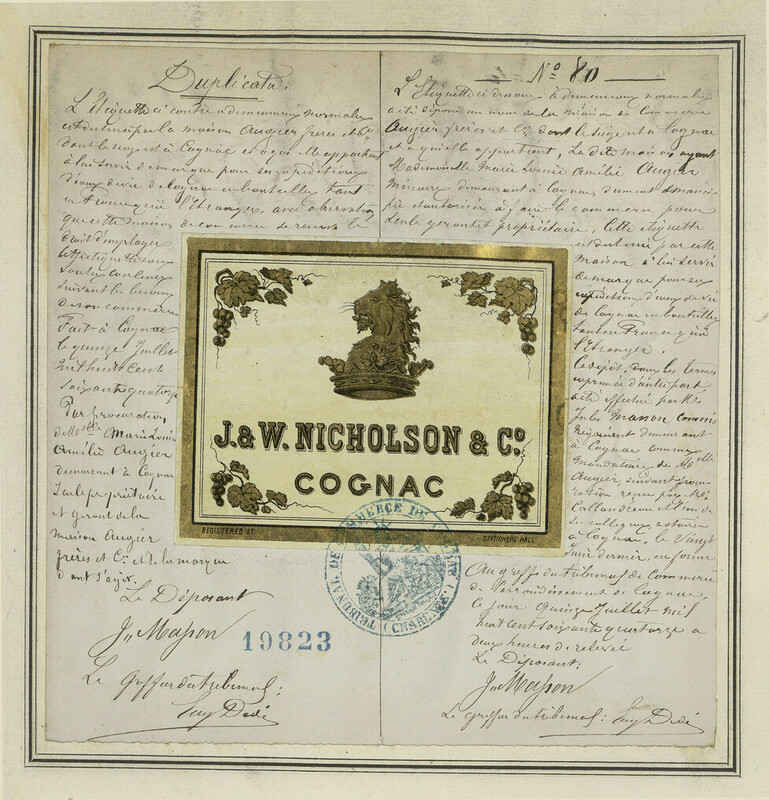 Duplicata.
L'Etiquette ci contre a dimensions normales
est du type de la maison Augier frères et Cie
dont le siège est à Cognac et à qui elle appartient
à lui servir de marque pour ses expéditions
d'eaux de vie de Cognac en bouteilles tant
en France qu'à l'étranger, avec observation
que cette maison de commerce se réserve le
droit d'employer
cette étiquette sous
toutes couleurs
suivant les besoins
de son commerce
Fait à Cognac
le quinze Juillet
mil huit cent
soixante quatorze
Par procuration
de Melle Marie Louise
Amélie Augier
demeurant à Cognac
Seule propriétaire
et gérant de la
maison Augier
frères et Cie et de la marque
dont s'agit.
Le Déposant
Jes Masson
Le Greffier du tribunal:
19823
No 80
L'Etiquette ci dessous à dimensions normales
a été déposée au nom de la maison de Commerce
Augier frères et Cie dont le siège est à Cognac
et à qui elle appartient, La dite maison ayant
Mademoiselle Marie Louise Amélie Augier
Mineure demeurant à Cognac, dument émanci-
pée et autorisée à faire le commerce pour
seule gérante et propriétaire, Cette étiquette
est destinée par cette
Maison à lui servir
de marque pour ses
expéditions d'eaux de vie
de Cognac en bouteilles
tant en France qu'à
l'étranger.
Le dépôt, dans les termes
exprimés d'autre part
a été effectué par Mr
Jules Masson commis
Négociant demeurant
à Cognac comme
Mandataire de Melle
Augier suivant procu-
ration reçue par Me
Callandreau et l'un de
ses collègues notaires
à Cognac, le Vingt
Juin dernier, en forme
Au greffe du tribunal de Commerce
de l'arrondissement de Cognac,
ce jour quinze Juillet mil
huit cent soixante quatorze à
deux heures de relevée
Le Déposant:
Jes Masson
Le greffier du tribunal:
J. & W. NICHOLSON & Co.
COGNAC
REGISTERED AT
STATIONERS' HALL
TRIBUNAL DE COMMERCE DE COGNAC
(CHARENTE)